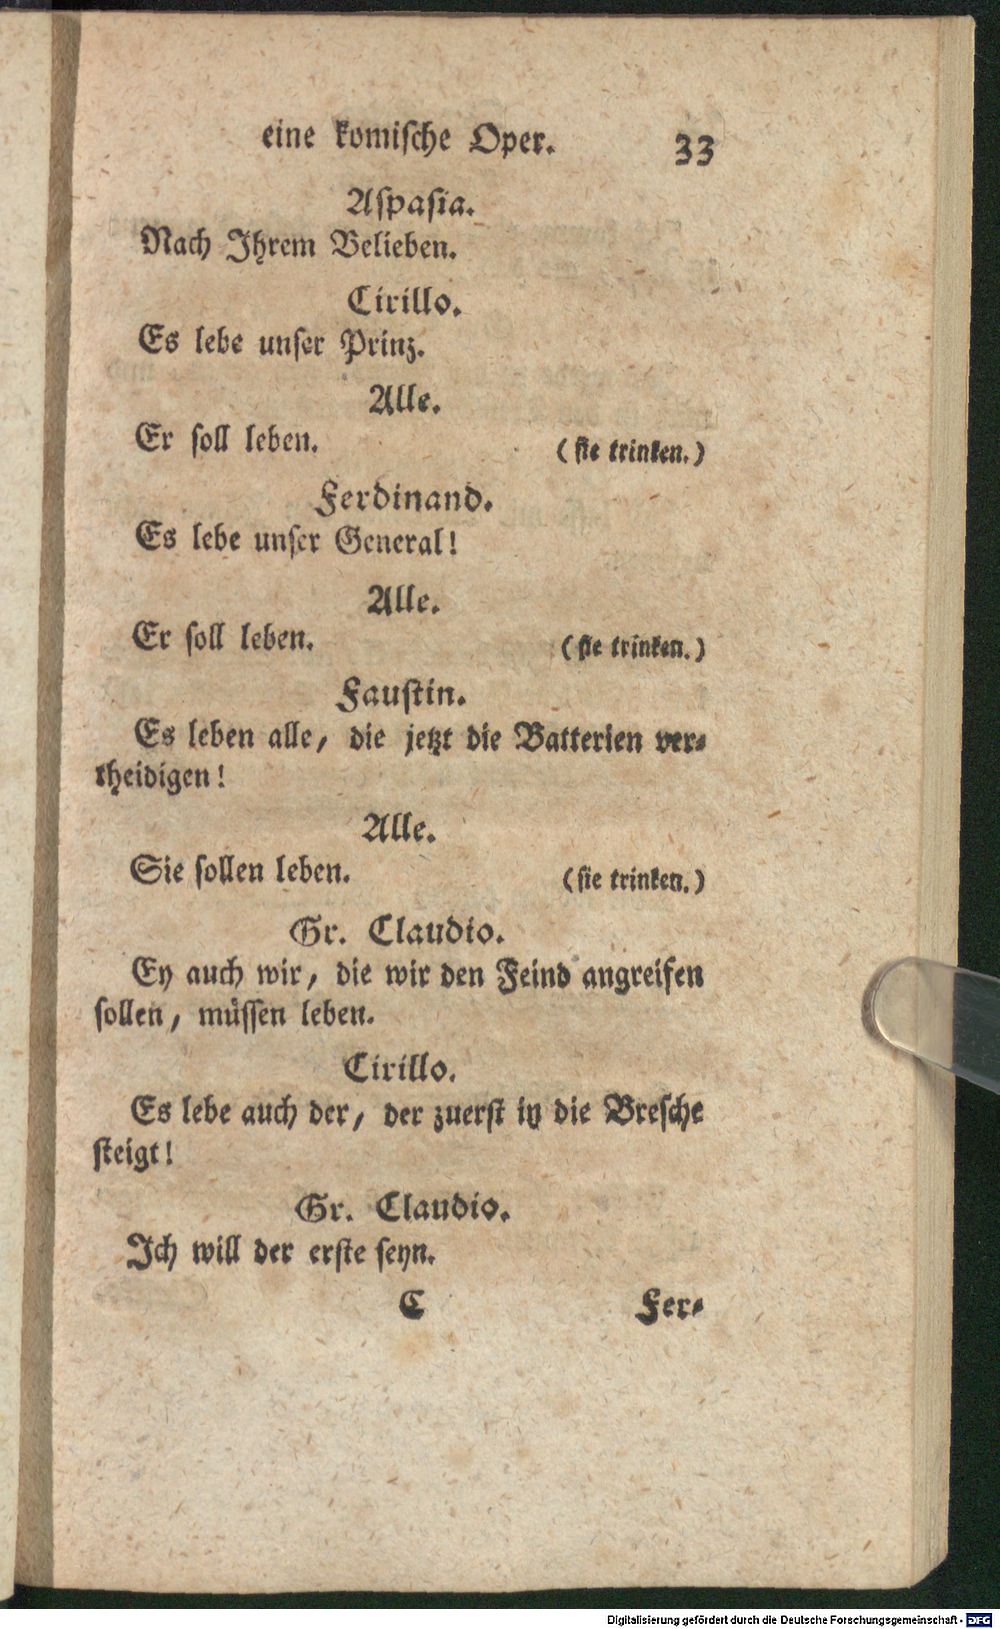 eine komiſche Oper. 33
Aſpaſia.
Nach Ihrem Belieben.
Cirillo.
Es lebe unſer Prinz.
Alle.
Er ſoll leben. (ſie trinken.)
Ferdinand.
Es lebe unſer General!
Alle.
Er ſoll leben. (ſie trinken.)
Fauſtin.
Es leben alle, die jetzt die Batterien ver⸗
theidigen!
Alle.
Sie ſollen leben. (ſie trinken.)
Gr. Claudio.
Ey auch wir, die wir den Feind angreifen
ſollen, müſſen leben.
Cirillo.
Es lebe auch der, der zuerſt in die Breſche
ſteigt!
Gr. Claudio.
Ich will der erſte ſeyn.
C Fer⸗
Digitalisierung gefördert durch die Deutsche Forschungsgemeinschaft - DFG